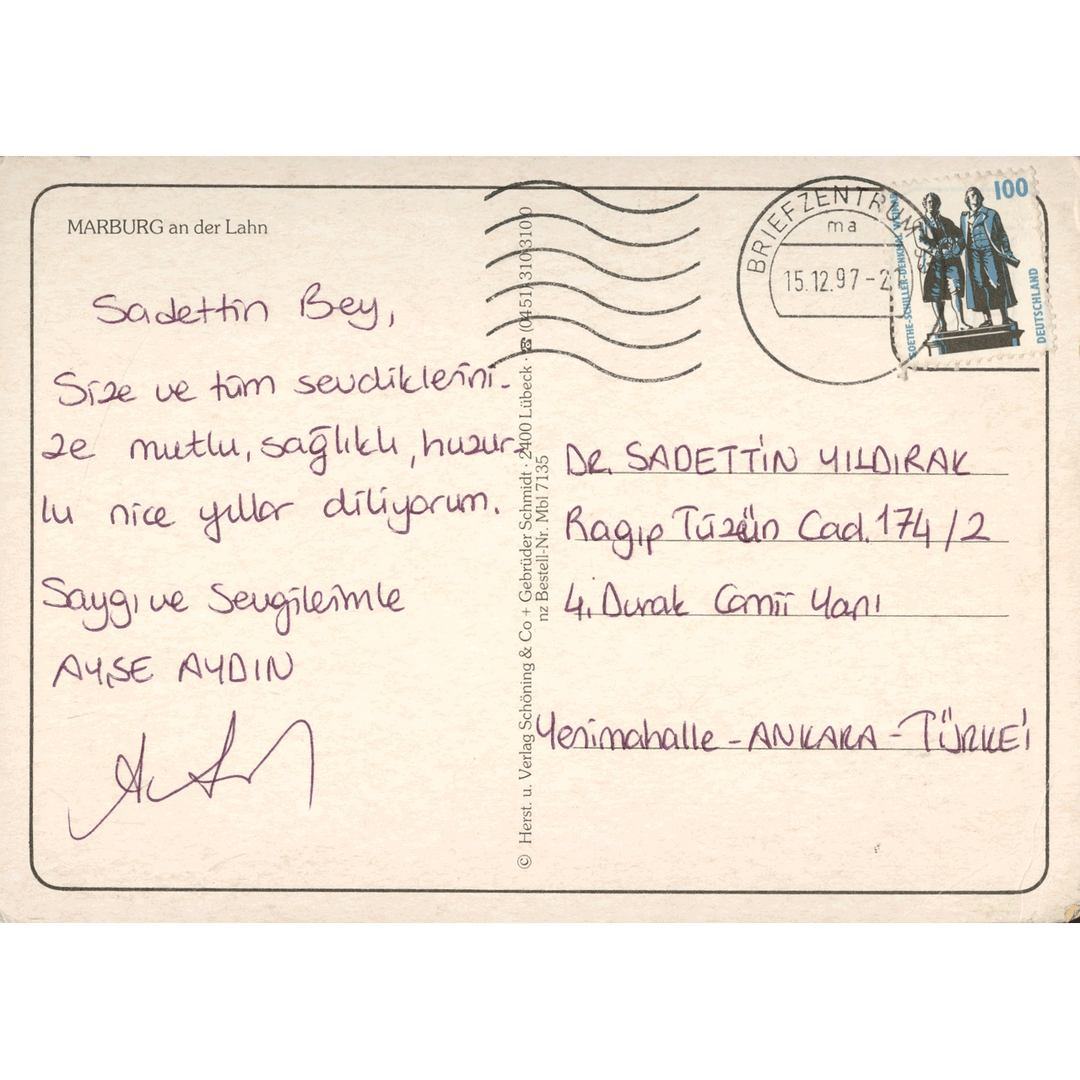 MARBURG an der Lahn
Sadettin Bey,
Size ve tüm sevdiklerini-
ze mutlu, sağlıklı, huzur-
lu nice yıllar diliyorum.
Saygı ve Sevgilerimle
AYŞE AYDIN
© Herst. u. Verlag Schöning & Co + Gebrüder Schmidt · 2400 Lübeck · ☎ (0451) 310310
nz Bestell-Nr. Mbl 7135
BRIEFZENTRUM
ma
15.12.97-2
100
GOETHE-SCHILLER-DENKMAL
DEUTSCHLAND
DR. SADETTİN YILDIRAK
Ragıp Tüzün Cad. 174/2
4. Durak Camii Yanı
Yenimahalle - ANKARA - TÜRKEİ